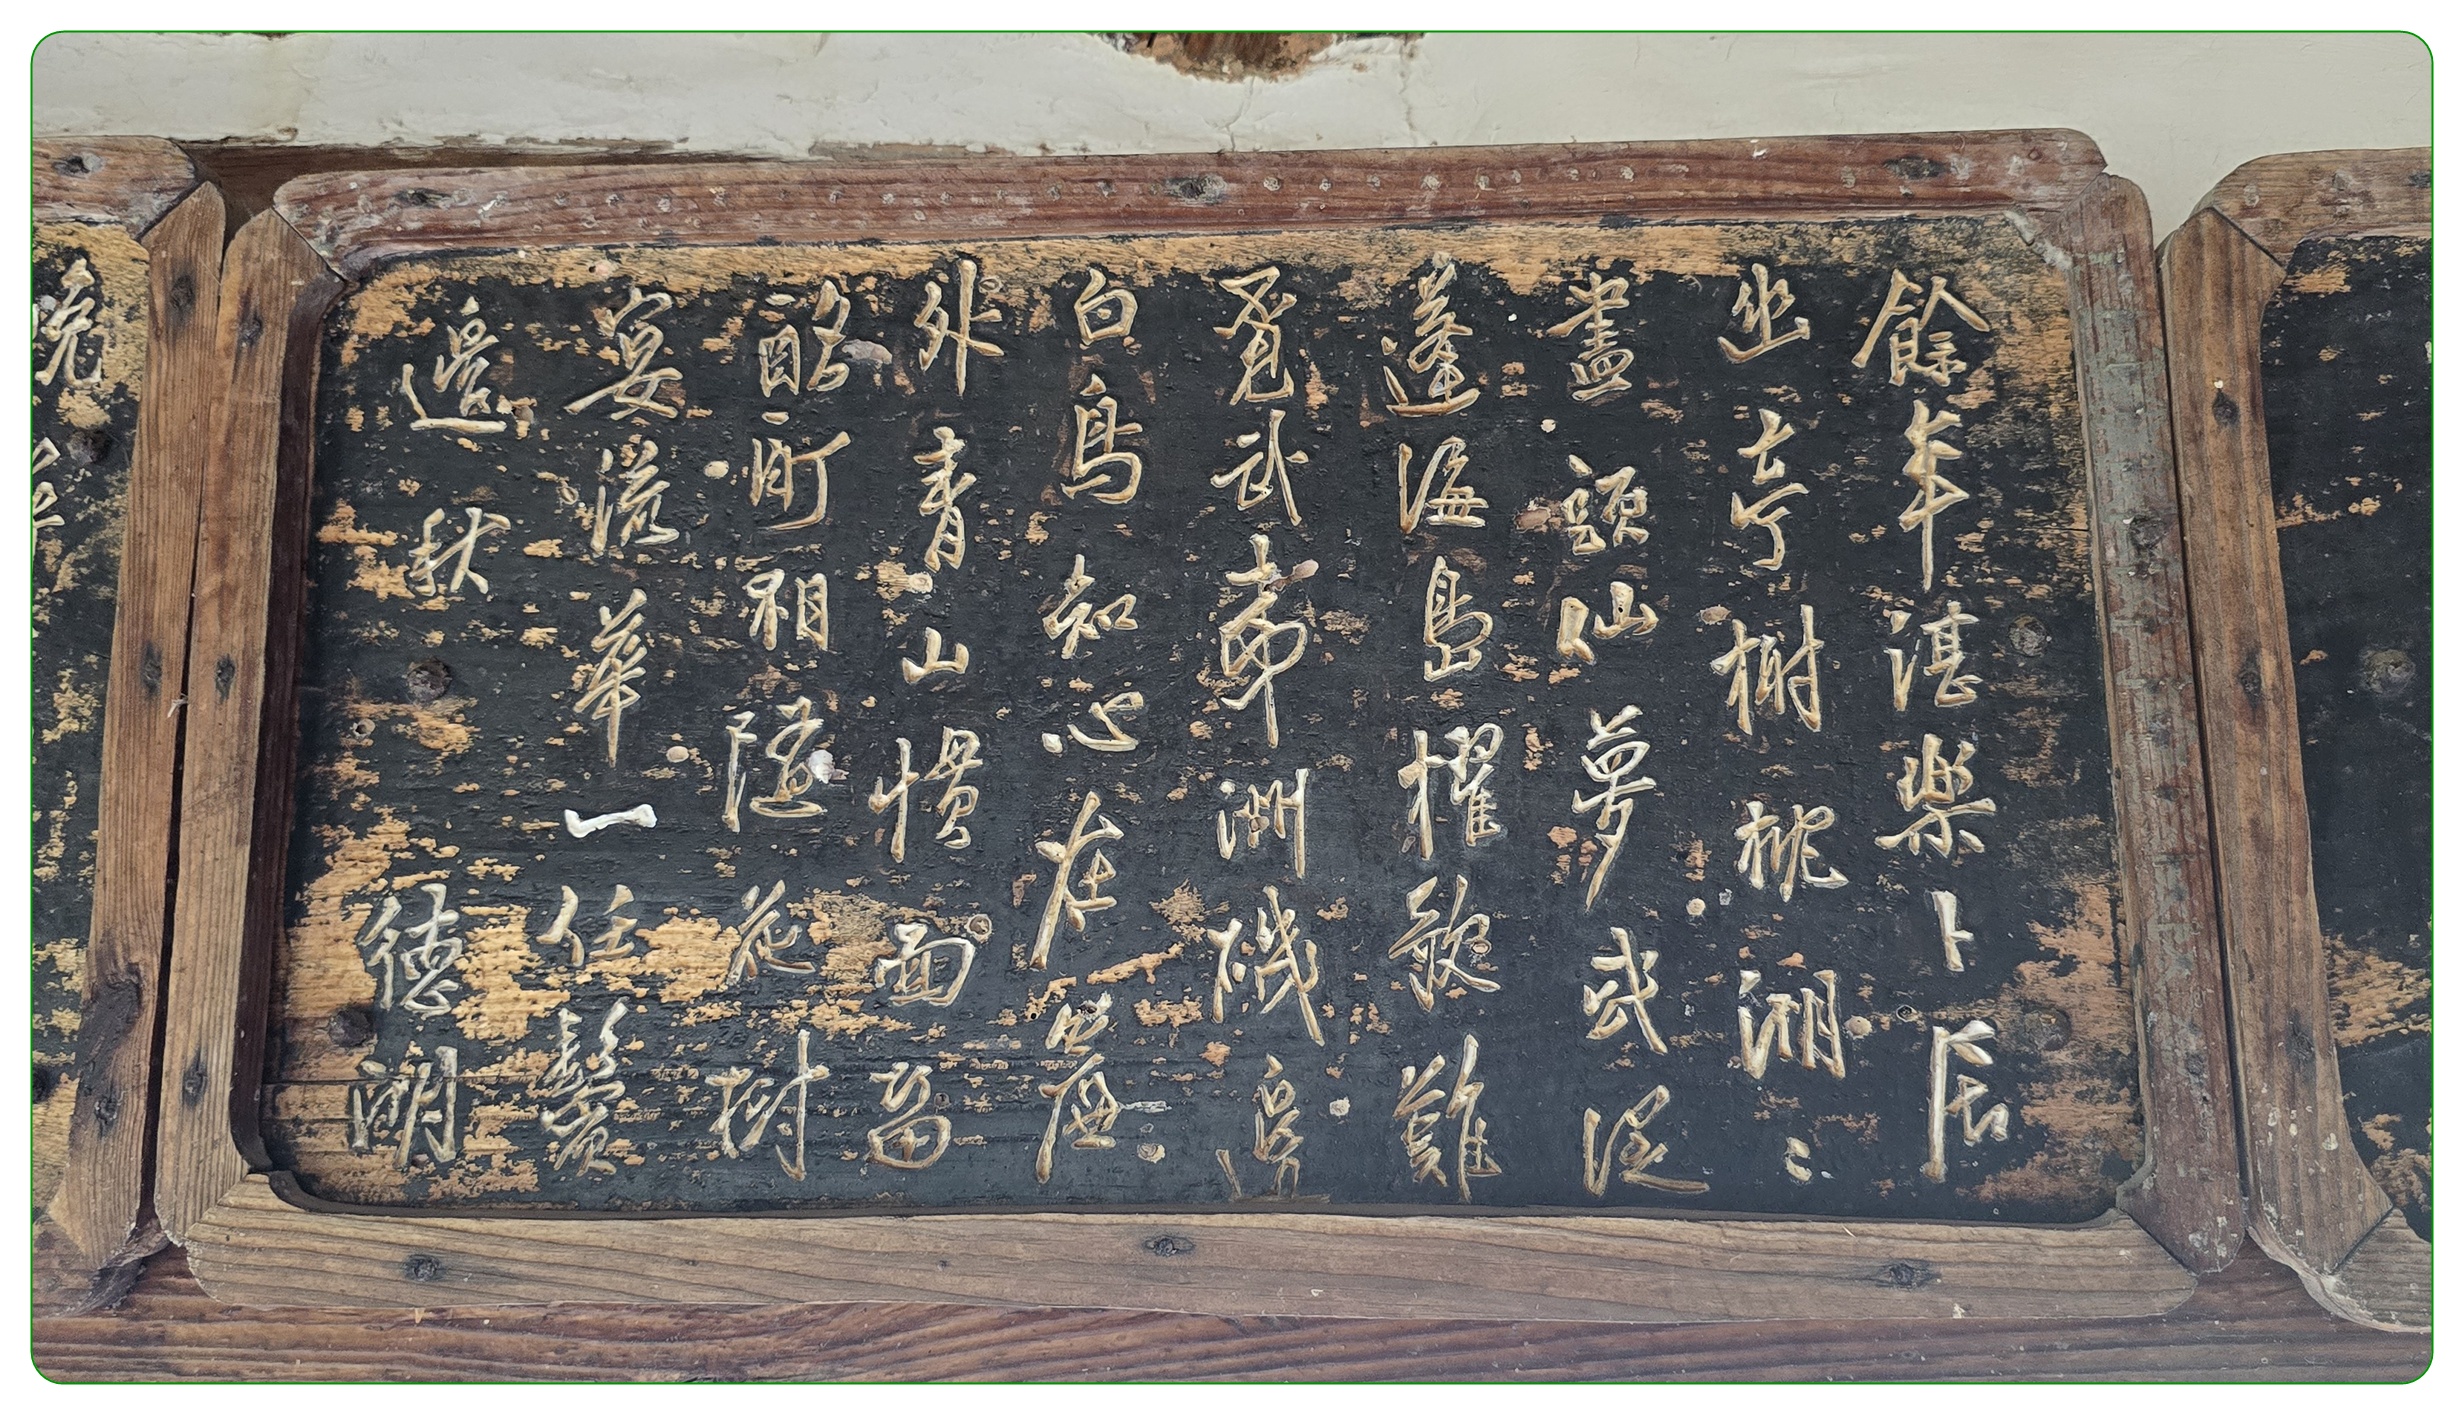 餘年湛樂卜居
幽亭榭桃湖〻
盡頭仙夢或從
蓬瀛島櫂歌難
覓武夷洲機邊
白鳥知心在簾
外青山慣面留
酩酊相隨花樹
宴滋華一任鬢
邊秋 德湖